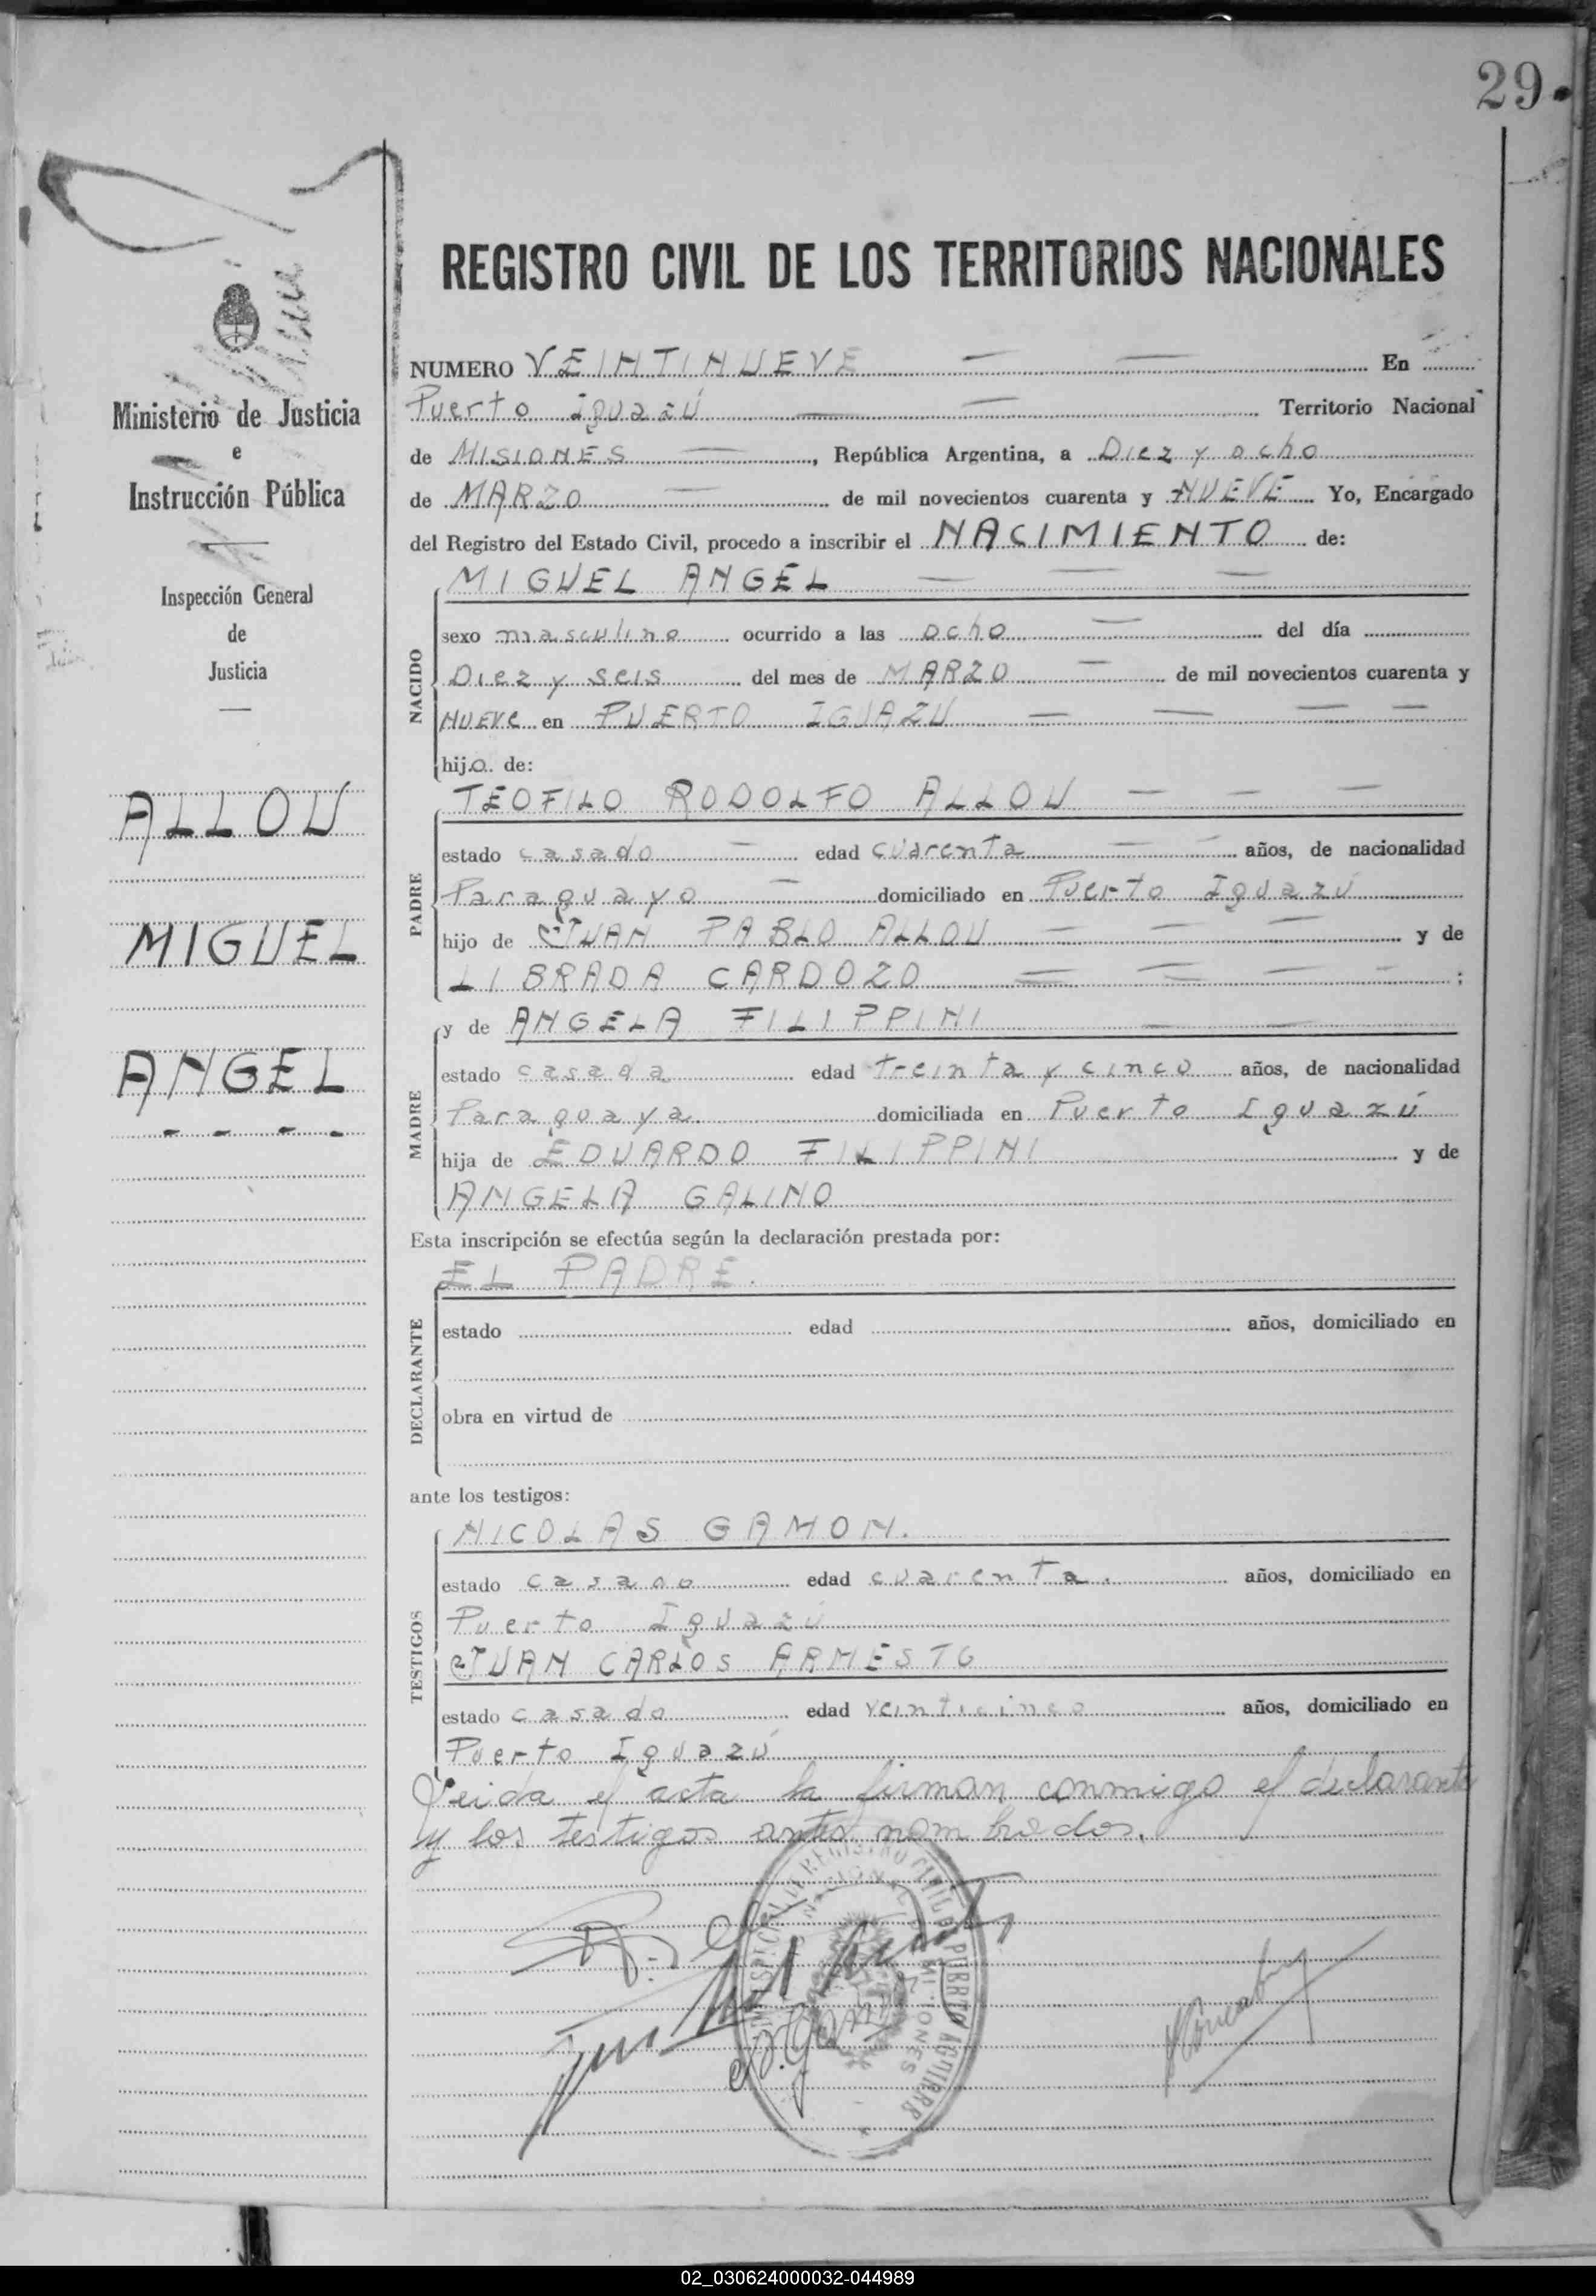 29.
REGISTRO CIVIL DE LOS TERRITORIOS NACIONALES
Ministerio de Justicia
e
Instrucción Pública
Inspección General
de
Justicia
ALLOU
MIGUEL
ANGEL
NUMERO VEINTINUEVE En
Puerto Iguazú Territorio Nacional
de MISIONES, República Argentina, a Diez y ocho
de MARZO de mil novecientos cuarenta y NUEVE Yo, Encargado
del Registro del Estado Civil, procedo a inscribir el NACIMIENTO de:
NACIDO
MIGUEL ANGEL
sexo masculino ocurrido a las ocho del día
Diez y seis del mes de MARZO de mil novecientos cuarenta y
NUEVE en PUERTO IGUAZU
hijo de:
PADRE
TEOFILO RODOLFO ALLOU
estado casado edad cuarenta años, de nacionalidad
Paraguayo domiciliado en Puerto Iguazú
hijo de JUAN PABLO ALLOU y de
LIBRADA CARDOZO ;
MADRE
y de ANGELA FILIPPINI
estado casada edad treinta y cinco años, de nacionalidad
Paraguaya. domiciliada en Puerto Iguazú
hija de EDUARDO FILIPPINI y de
ANGELA GALINO
Esta inscripción se efectúa según la declaración prestada por:
DECLARANTE
EL PADRE.
estado edad años, domiciliado en
obra en virtud de
ante los testigos:
TESTIGOS
NICOLAS GAMON.
estado casado edad cuarenta. años, domiciliado en
Puerto Iguazú
JUAN CARLOS ARMESTO
estado casado edad veinticinco años, domiciliado en
Puerto Iguazú
Leida el acta la firman conmigo el declarante
y los testigos antes nombrados.
REGISTRO CIVIL PUERTO AGUIRRE
MISIONES
02_030624000032-044989